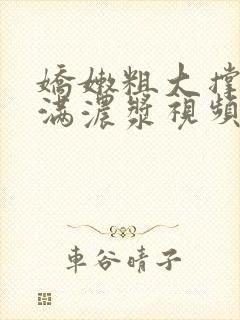 嬌嫩粗大撐
滿濃漿視頻
車谷晴子